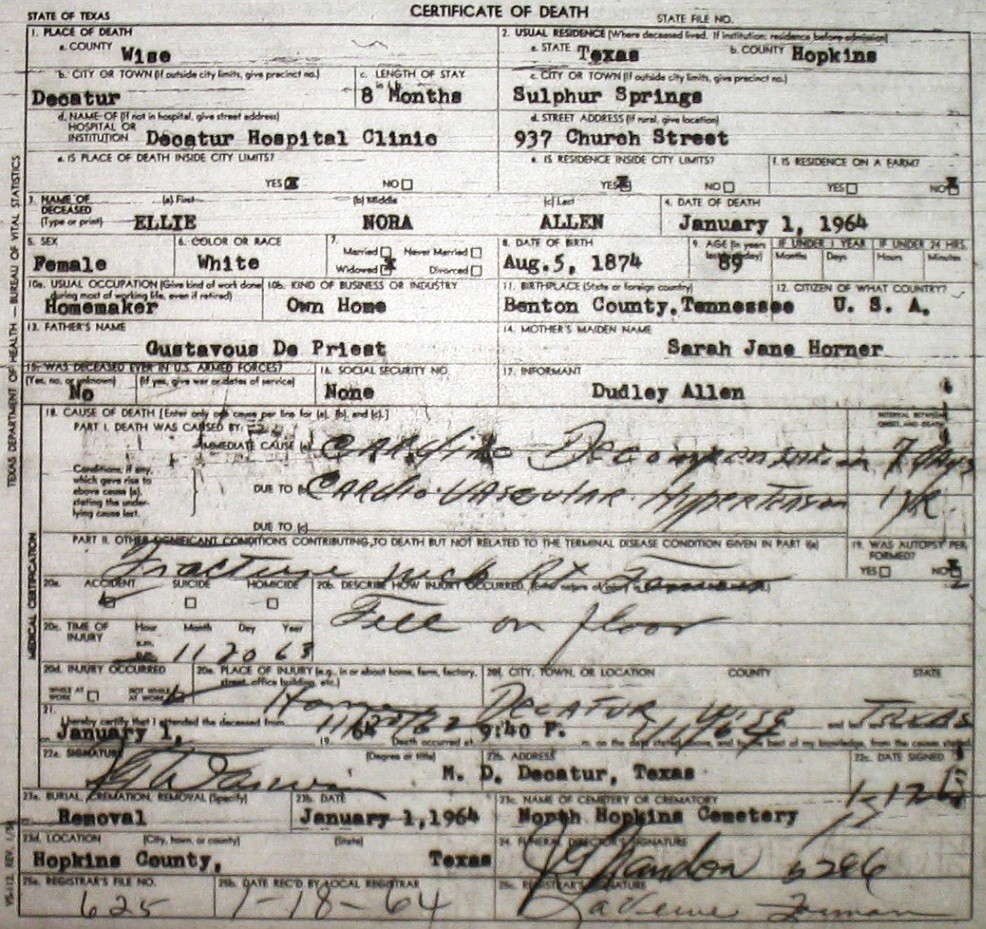 CERTIFICATE OF DEATH
STATE OF TEXAS STATE FILE NO.
1. PLACE OF DEATH
a. COUNTY Wise
2. USUAL RESIDENCE (Where deceased lived. If institution: residence before admission)
a. STATE Texas b. COUNTY Hopkins
b. CITY OR TOWN (If outside city limits, give precinct no.)
Decatur
c. LENGTH OF STAY
8 Months
c. CITY OR TOWN (If outside city limits, give precinct no.)
Sulphur Springs
d. NAME OF (If not in hospital, give street address)
HOSPITAL OR
INSTITUTION Decatur Hospital Clinic
d. STREET ADDRESS (If rural, give location)
937 Church Street
e. IS PLACE OF DEATH INSIDE CITY LIMITS?
YES NO
e. IS RESIDENCE INSIDE CITY LIMITS?
YES NO
f. IS RESIDENCE ON A FARM?
YES NO
3. NAME OF (a) First (b) Middle (c) Last
DECEASED
(Type or print) ELLIE NORA ALLEN
4. DATE OF DEATH
January 1, 1964
5. SEX
Female
6. COLOR OR RACE
White
7.
Married Never Married
Widowed Divorced
8. DATE OF BIRTH
Aug.5, 1874
9. AGE (In years
89
IF UNDER 1 YEAR IF UNDER 24 HRS.
Months Days Hours Minutes
10a. USUAL OCCUPATION (Give kind of work done
during most of working life, even if retired)
Homemaker
10b. KIND OF BUSINESS OR INDUSTRY
Own Home
11. BIRTHPLACE (State or foreign country)
Benton County, Tennessee
12. CITIZEN OF WHAT COUNTRY?
U. S. A.
13. FATHER'S NAME
Gustavous De Priest
14. MOTHER'S MAIDEN NAME
Sarah Jane Horner
15. WAS DECEASED EVER IN U.S. ARMED FORCES?
(Yes, no, or unknown) (If yes, give war or dates of service)
No
16. SOCIAL SECURITY NO.
None
17. INFORMANT
Dudley Allen
18. CAUSE OF DEATH [Enter only one cause per line for (a), (b), and (c).]
PART I. DEATH WAS CAUSED BY:
IMMEDIATE CAUSE (a) Cardiac Decompensation 7 days
INTERVAL BETWEEN
ONSET AND DEATH
Conditions, if any,
which gave rise to
above cause (a),
stating the under-
lying cause last.
DUE TO (b) Cardio-Vascular Hypertension 1 yr.
DUE TO (c)
PART II. OTHER SIGNIFICANT CONDITIONS CONTRIBUTING TO DEATH BUT NOT RELATED TO THE TERMINAL DISEASE CONDITION GIVEN IN PART I(a)
Fracture neck Rt Femur
19. WAS AUTOPSY PER-
FORMED?
YES NO
20a. ACCIDENT SUICIDE HOMICIDE
20b. DESCRIBE HOW INJURY OCCURRED.
Fell on floor
20c. TIME OF Hour Month Day Year
INJURY
a.m.
p.m. 11 20 63
20d. INJURY OCCURRED
WHILE AT WORK NOT WHILE AT WORK
20e. PLACE OF INJURY (e.g., in or about home, farm, factory,
street, office building, etc.)
Home
20f. CITY, TOWN, OR LOCATION COUNTY STATE
Decatur Wise Texas
21.
I hereby certify that I attended the deceased from
January 1, 19 64 Death occurred at 9:40 P. m. on the date stated above, and to the best of my knowledge, from the causes stated.
22a. SIGNATURE (Degree or title)
M. D.
22b. ADDRESS
Decatur, Texas
22c. DATE SIGNED
23a. BURIAL, CREMATION, REMOVAL (Specify)
Removal
23b. DATE
January 1, 1964
23c. NAME OF CEMETERY OR CREMATORY
North Hopkins Cemetery
23d. LOCATION (City, town, or county) (State)
Hopkins County, Texas
24. FUNERAL DIRECTOR'S SIGNATURE
25a. REGISTRAR'S FILE NO.
625
25b. DATE REC'D BY LOCAL REGISTRAR
1-18-64
25c. REGISTRAR'S SIGNATURE
TEXAS DEPARTMENT OF HEALTH — BUREAU OF VITAL STATISTICS
MEDICAL CERTIFICATION